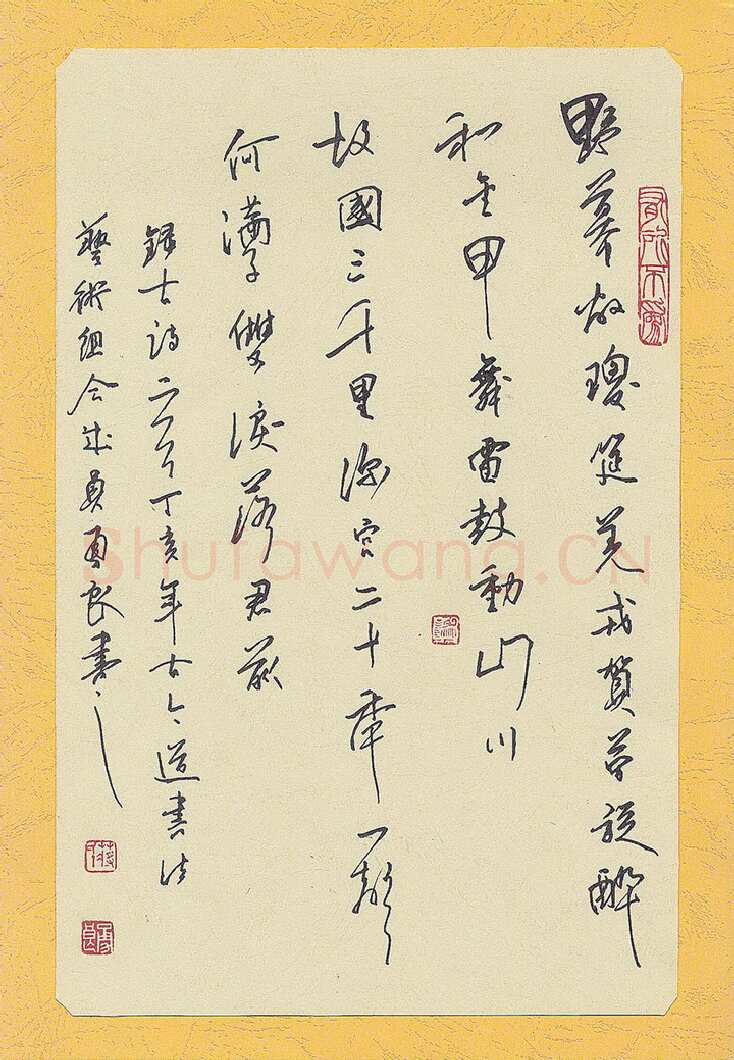 野幕敞瓊筵羌戎賀勞旋醉
和金甲舞雷鼓動山川
故國三千里深宮二十年一聲
何滿子雙淚落君前
錄古詩二首丁亥年古今道書法
藝術組合成員勇良書之
有所不為
Shufawang.CN